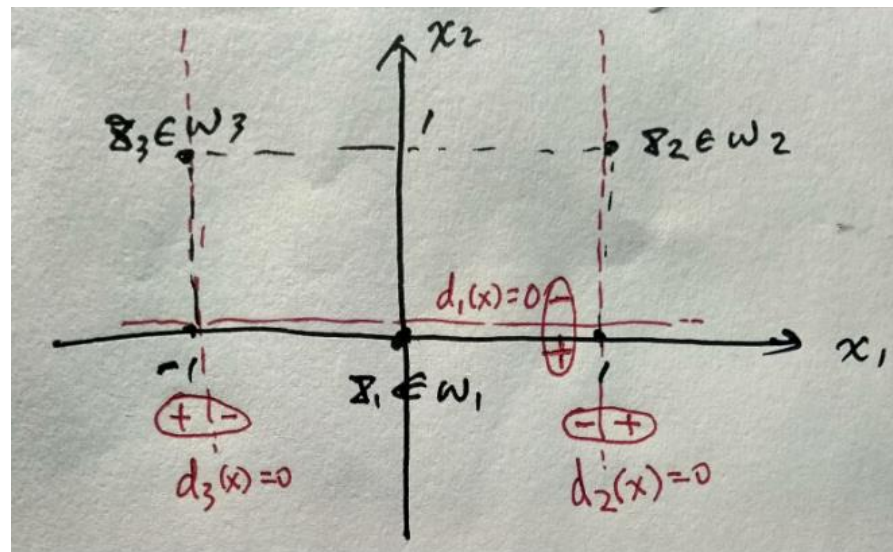 x₂
𝐱₃ ∈ w₃
1
𝐱₂ ∈ w₂
d₁(x)=0
−
+
x₁
-1
𝐱₁ ∈ w₁
1
+ −
− +
d₃(x)=0
d₂(x)=0